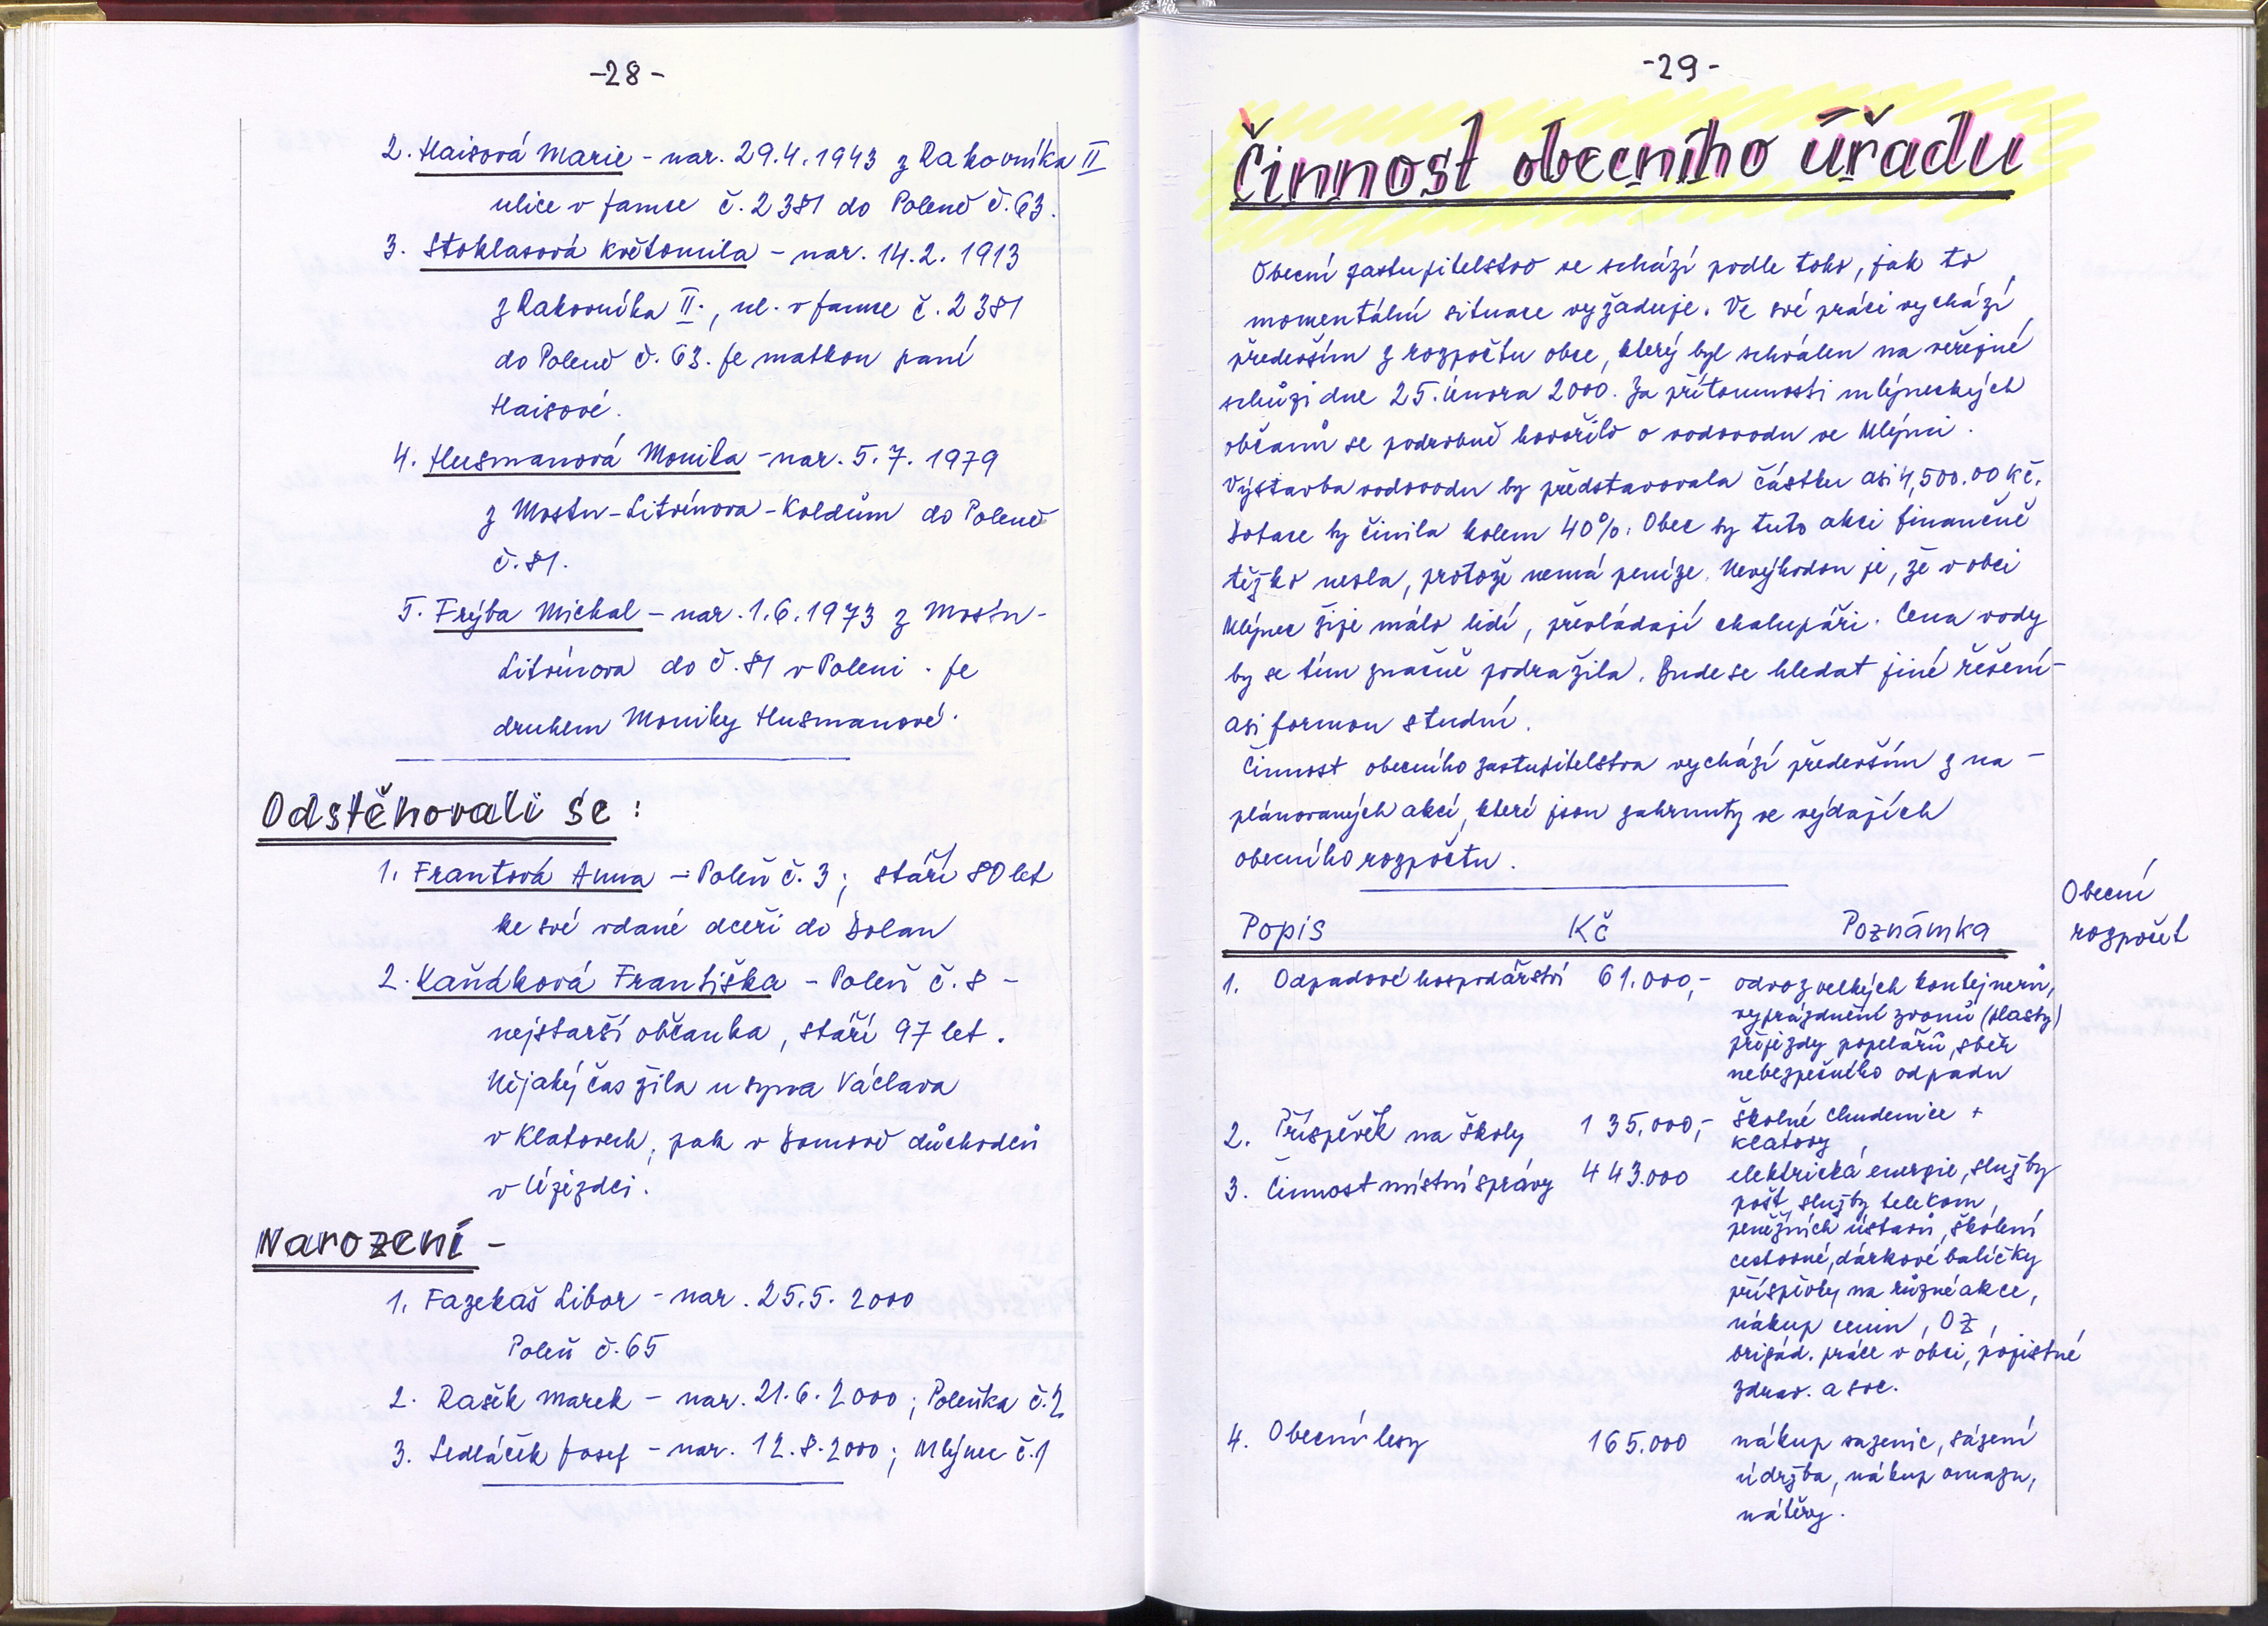 -28-
2. Haisová Marie - nar. 29.4.1943 z Rakovníka II
ulice v jamce č. 2381 do Poleně č. 63.
3. Stoklasová Květomila - nar. 14.2. 1913
z Rakovníka II., ul. v jamce č. 2381
do Poleně č. 63. Je matkou paní
Haisové.
4. Husmanová Monika - nar. 5.7. 1979
z Mostu-Litvínova-Koldům do Poleně
č. 81.
5. Frýba Michal - nar. 1.6.1973 z Mostu-
Litvínova do č. 81 v Poleni. Je
druhem Moniky Husmanové.
Odstěhovali se :
1. Frantová Anna - Poleň č. 3; stáří 80 let
ke své vdané dceři do Dolan
2. Kaňáková Františka - Poleň č. 8 -
nejstarší občanka, stáří 97 let.
Nějaký čas žila u syna Václava
v Klatovech, pak v Domově důchodců
v Újezdci.
Narození -
1. Fazekaš Libor - nar. 25.5. 2000
Poleň č. 65
2. Rašek Marek - nar. 21.6. 2000; Poleňka č. 2
3. Sedláček Josef - nar. 12.8.2000; Mlýnec č. 1
-29-
Činnost obecního úřadu
Obecní zastupitelstvo se schází podle toho, jak to
momentální situace vyžaduje. Ve své práci vychází
především z rozpočtu obce, který byl schválen na veřejné
schůzi dne 25. února 2000. Za přítomnosti mlýneckých
občanů se podrobně hovořilo o vodovodu ve Mlýnci.
Výstavba vodovodu by představovala částku asi 4,500.00 Kč.
Dotace by činila kolem 40%. Obec by tuto akci finančně
těžko nesla, protože nemá peníze. Nevýhodou je, že v obci
Mlýnec žije málo lidí, převládají chalupáři. Cena vody
by se tím značně podražila. Bude se hledat jiné řešení-
asi formou studní.
Činnost obecního zastupitelstva vychází především z na-
plánovaných akcí, které jsou zahrnuty ve výdajích
obecního rozpočtu.
Obecní
rozpočet
Popis Kč Poznámka
1. Odpadové hospodářství 61.000,- odvoz velkých kontejnerů,
vyprázdnění zvonů (plasty)
příjezdy popelářů, sběr
nebezpečného odpadu
2. Příspěvek na školy 135.000,- školné Chudenice +
Klatovy
3. Činnost místní správy 443.000 elektrická energie, služby
pošt, služby telekom,
peněžních ústavů, školení
cestovné, dárkové balíčky
příspěvky na různé akce,
nákup cenin, OZ,
brigád. práce v obci, pojistné
zdrav. a soc.
4. Obecní lesy 165.000 nákup sazenic, sázení
údržba, nákup
nátěry.